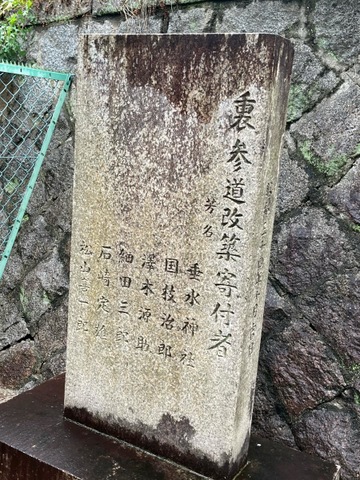 裏参道改築寄付者
芳名
垂水神社
国枝治郎
澤木源助
細田三郎
石崎定雄